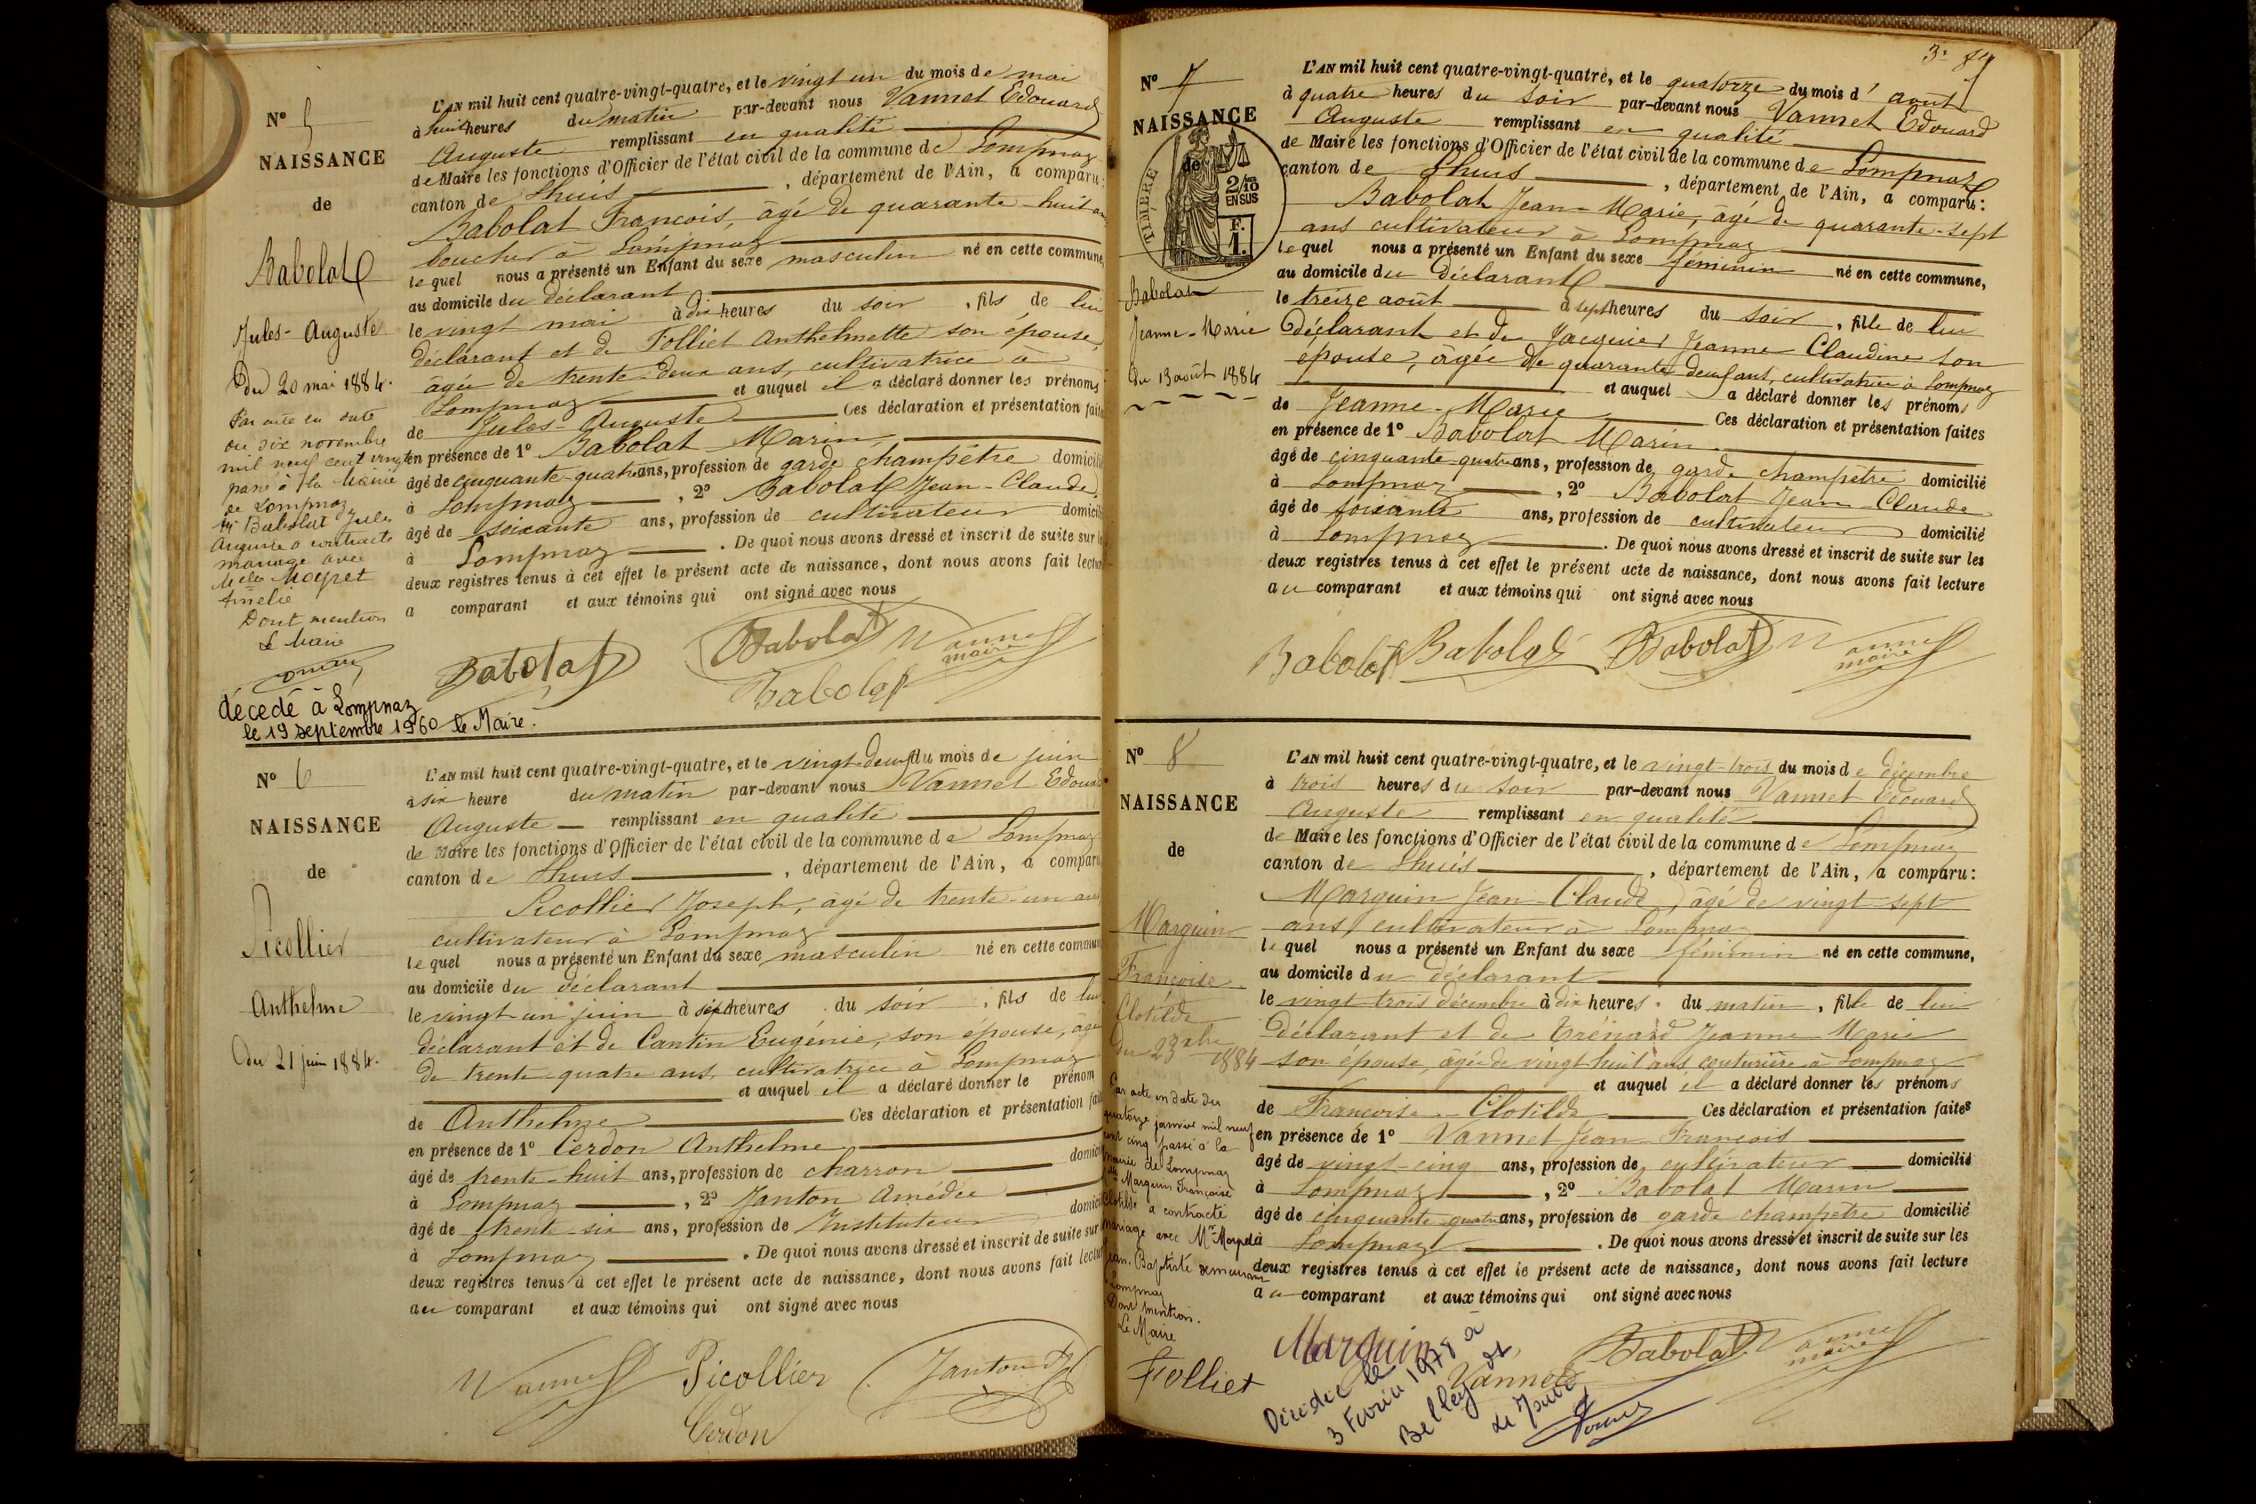 N° 5
NAISSANCE
de
Babolat
Jules-Auguste
du 20 mai 1884.
Par acte en date
du six novembre
mil neuf cent vingt
passé à la Mairie
de Lompnaz
Mr Babolat Jules
Auguste a contracté
mariage avec
Melle Moyret
Amélie
Dont mention
Le Maire
décédé à Lompnaz
le 19 septembre 1960 le Maire.
L'AN mil huit cent quatre-vingt-quatre, et le vingt un du mois de mai
à huit heures du matin par-devant nous Vannet Edouard
Auguste remplissant en qualité
de Maire les fonctions d'Officier de l'état civil de la commune de Lompnaz
canton de Lhuis, département de l'Ain, a comparu:
Babolat François, âgé de quarante-huit ans
boucher à Lompnaz
lequel nous a présenté un Enfant du sexe masculin né en cette commune,
au domicile du déclarant
le vingt mai à dix heures du soir, fils de lui
déclarant et de Folliet Anthelmette son épouse,
âgée de trente-deux ans, cultivatrice à
Lompnaz et auquel il a déclaré donner les prénoms
de Jules-Auguste Ces déclaration et présentation faites
en présence de 1° Babolat Marin
âgé de cinquante-quatre ans, profession de garde champêtre domicilié
à Lompnaz, 2° Babolat Jean-Claude,
âgé de soixante ans, profession de cultivateur domicilié
à Lompnaz. De quoi nous avons dressé et inscrit de suite sur les
deux registres tenus à cet effet le présent acte de naissance, dont nous avons fait lecture
a comparant et aux témoins qui ont signé avec nous
Babolat Babolat Vannet
maire
Babolat
N° 6
NAISSANCE
de
Picollier
Anthelme
du 21 juin 1884.
L'AN mil huit cent quatre-vingt-quatre, et le vingt-deux du mois de juin
à six heure du matin par-devant nous Vannet Edouard
Auguste remplissant en qualité
de Maire les fonctions d'Officier de l'état civil de la commune de Lompnaz
canton de Lhuis, département de l'Ain, a comparu
Picollier Joseph, âgé de trente-un ans
cultivateur à Lompnaz
lequel nous a présenté un Enfant du sexe masculin né en cette commune
au domicile du déclarant
le vingt un juin à sept heures du soir, fils de lui
déclarant et de Cantin Eugénie, son épouse, âgée
de trente quatre ans, cultivatrice à Lompnaz
et auquel il a déclaré donner le prénom
de Anthelme Ces déclaration et présentation faites
en présence de 1° Cerdon Anthelme
âgé de trente-huit ans, profession de charron domicilié
à Lompnaz, 2° Janton Amédée
âgé de trente-six ans, profession de Instituteur domicilié
à Lompnaz. De quoi nous avons dressé et inscrit de suite sur
deux registres tenus à cet effet le présent acte de naissance, dont nous avons fait lecture
au comparant et aux témoins qui ont signé avec nous
Vannet Picollier Janton
Cerdon
N° 7
NAISSANCE
de
TIMBRE
2/10 EN SUS
F. 1.
Babolat
Jeanne-Marie
du 13 août 1884
L'AN mil huit cent quatre-vingt-quatre, et le quatorze du mois d'août
à quatre heures du soir par-devant nous Vannet Edouard
Auguste remplissant en qualité
de Maire les fonctions d'Officier de l'état civil de la commune de Lompnaz
canton de Lhuis, département de l'Ain, a comparu:
Babolat Jean-Marie, âgé de quarante-sept
ans cultivateur à Lompnaz
lequel nous a présenté un Enfant du sexe féminin né en cette commune,
au domicile du déclarant
le treize août à sept heures du soir, fille de lui
déclarant et de Jacquier Jeanne Claudine son
épouse, âgée de quarante deux ans, cultivatrice à Lompnaz
et auquel a déclaré donner les prénoms
de Jeanne-Marie Ces déclaration et présentation faites
en présence de 1° Babolat Marin
âgé de cinquante-quatre ans, profession de garde champêtre domicilié
à Lompnaz, 2° Babolat Jean-Claude
âgé de soixante ans, profession de cultivateur domicilié
à Lompnaz. De quoi nous avons dressé et inscrit de suite sur les
deux registres tenus à cet effet le présent acte de naissance, dont nous avons fait lecture
au comparant et aux témoins qui ont signé avec nous
Babolat Babolat Babolat Vannet
maire
N° 8
NAISSANCE
de
Marguin
Françoise
Clotilde
du 23 xbre
1884
Par acte en date du
quatorze janvier mil neuf
cent cinq passé à la
mairie de Lompnaz
Melle Marguin Françoise
Clotilde a contracté
mariage avec Mr Moyret
Jean-Baptiste demeurant
Lompnaz
Dont mention.
Le Maire
Folliet
L'AN mil huit cent quatre-vingt-quatre, et le vingt-trois du mois de décembre
à trois heures du soir par-devant nous Vannet Edouard
Auguste remplissant en qualité
de Maire les fonctions d'Officier de l'état civil de la commune de Lompnaz
canton de Lhuis, département de l'Ain, a comparu:
Marguin Jean-Claude, âgé de vingt-sept
ans, cultivateur à Lompnaz
lequel nous a présenté un Enfant du sexe féminin né en cette commune,
au domicile du déclarant
le vingt-trois décembre à dix heures du matin, fille de lui
déclarant et de Trénard Jeanne Marie
son épouse, âgée de vingt huit ans couturière à Lompnaz
et auquel il a déclaré donner les prénoms
de Françoise-Clotilde Ces déclaration et présentation faites
en présence de 1° Vannet Jean-François
âgé de vingt-cinq ans, profession de cultivateur domicilié
à Lompnaz, 2° Babolat Marin
âgé de cinquante-quatre ans, profession de garde champêtre domicilié
à Lompnaz. De quoi nous avons dressé et inscrit de suite sur les
deux registres tenus à cet effet le présent acte de naissance, dont nous avons fait lecture
au comparant et aux témoins qui ont signé avec nous
Marguin Vannet Babolat Vannet
maire
Décédée le
3 Février 1978 à
Belley